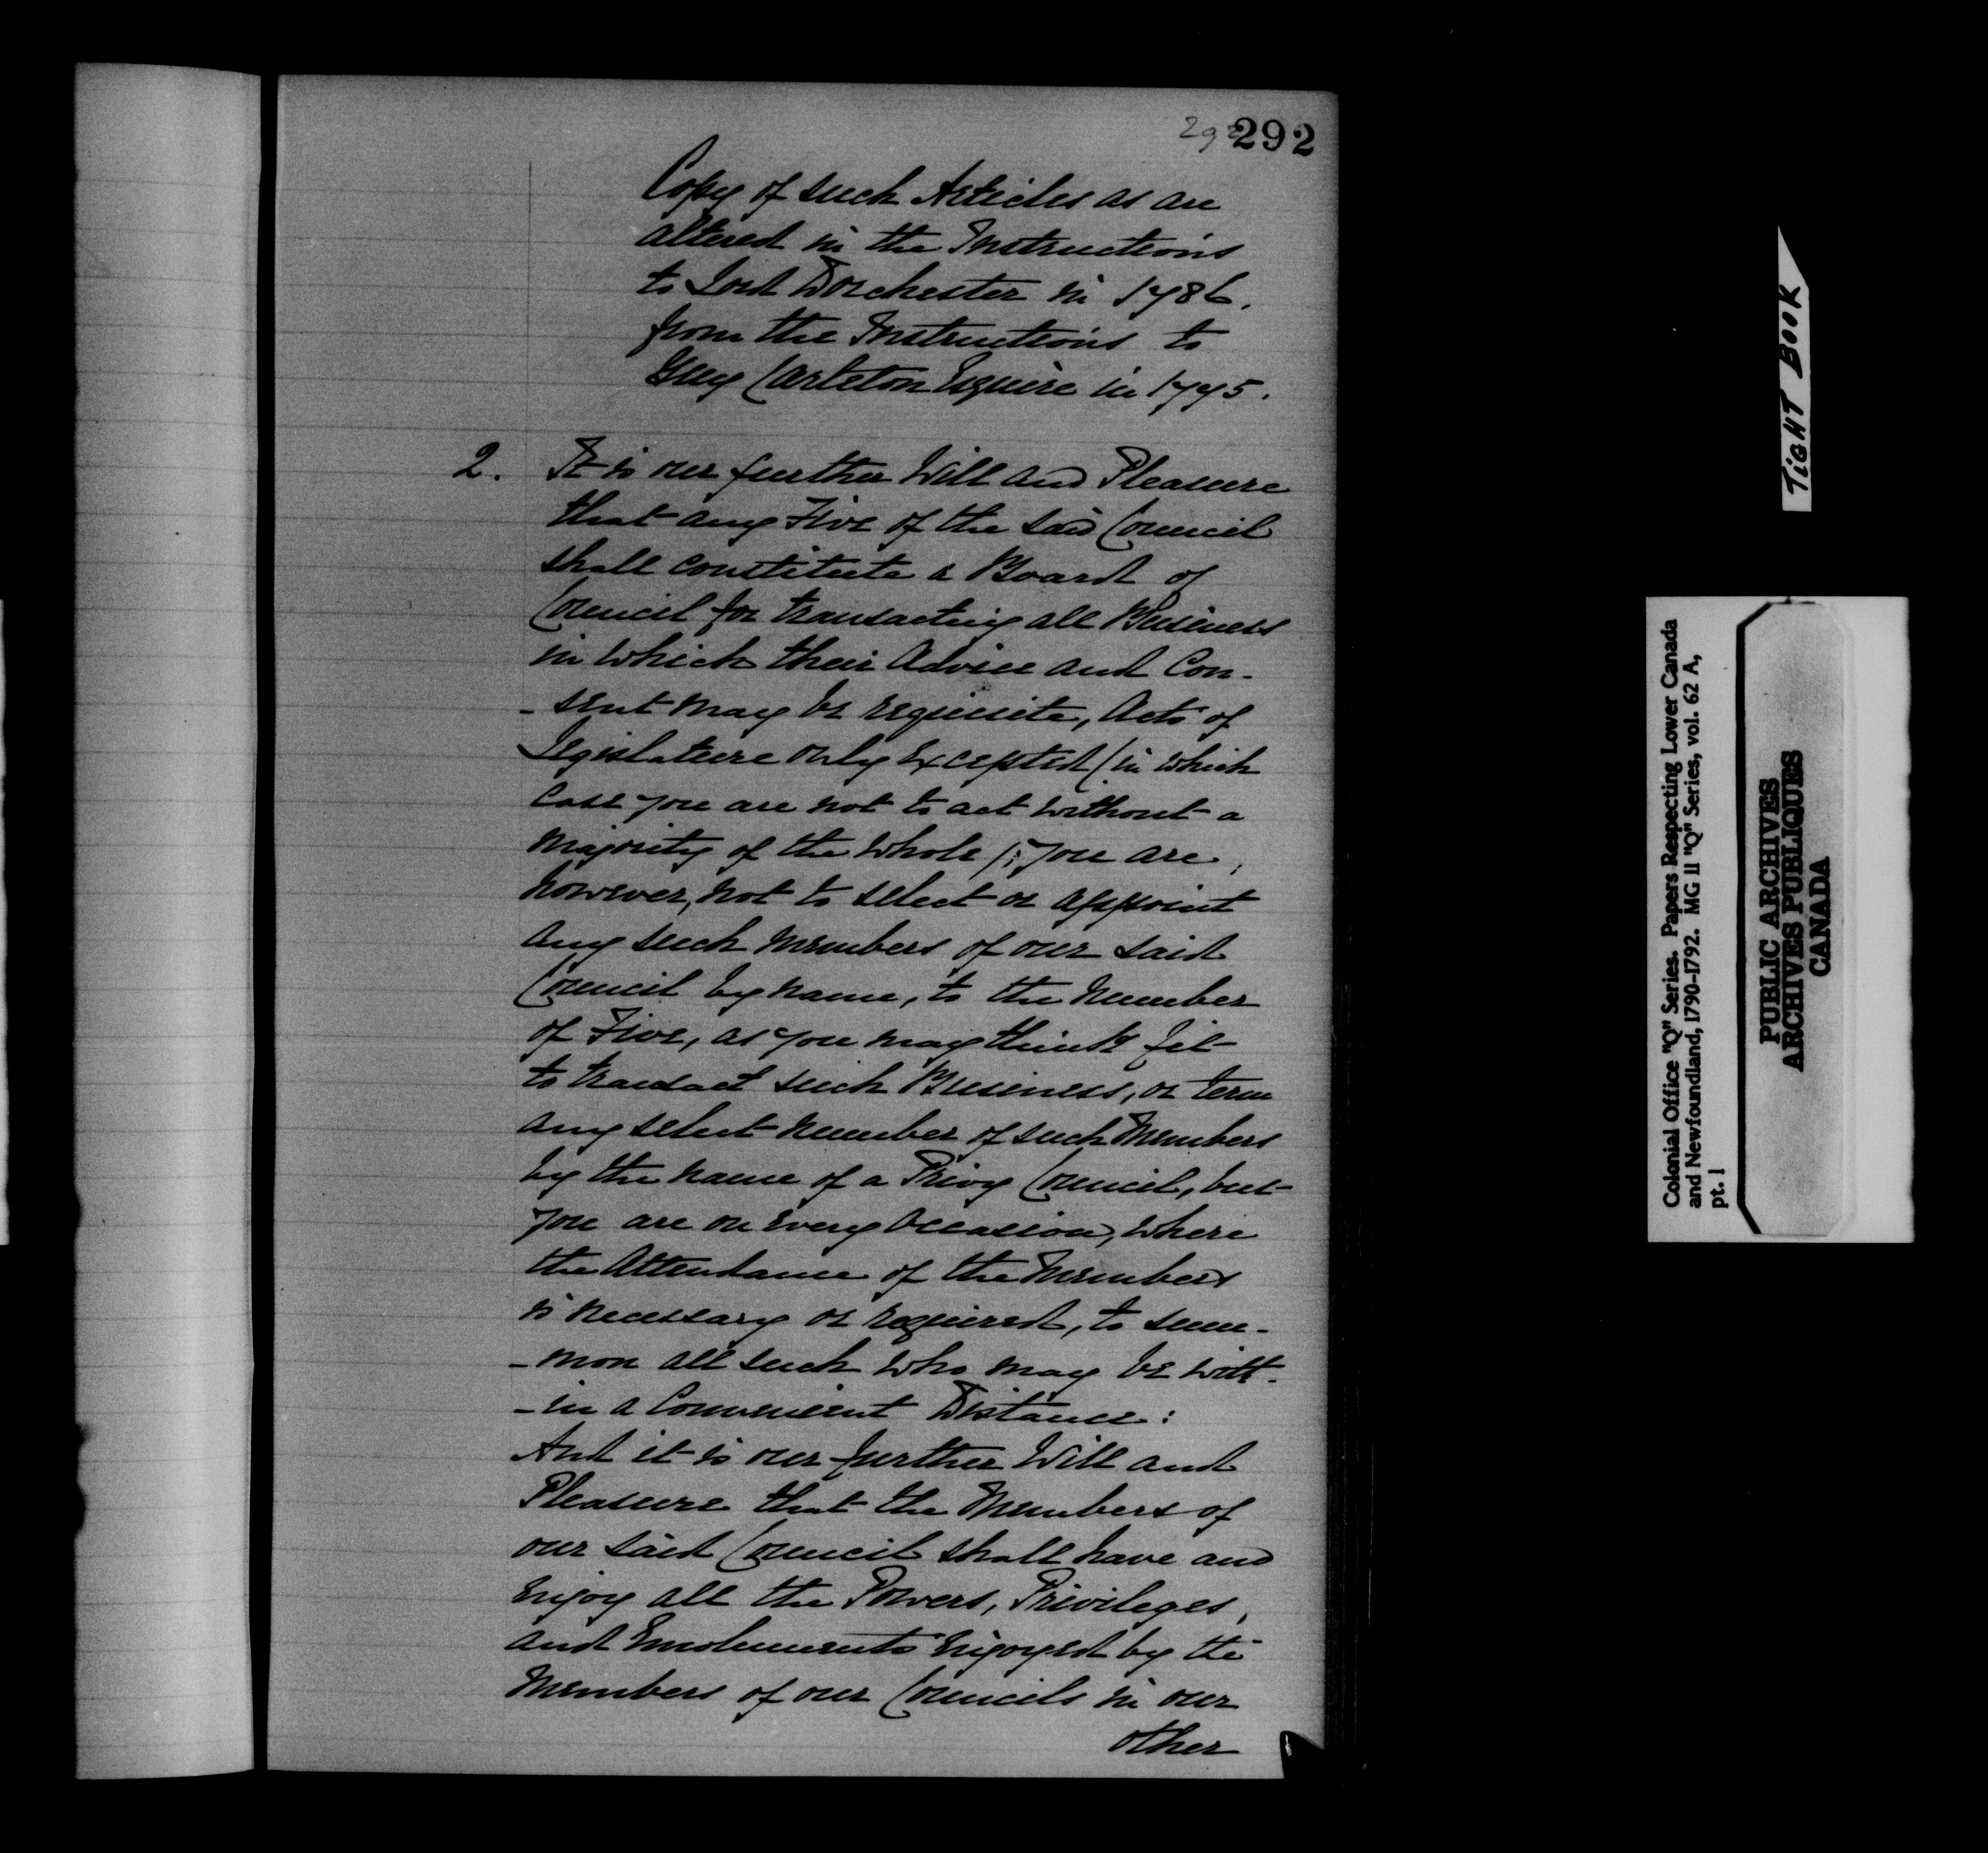 292
292
Copy of such Articles as are
altered in the Instructions
to Lord Dorchester in 1786.
from the Instructions to
Guy Carleton Esquire in 1775.
2. It is our further Will and Pleasure
that any Five of the said Council
shall constitute a Board of
Council for transacting all Business
in which their Advice and Con-
-sent may be requisite, Acts of
Legislature only excepted (in which
Case you are not to act without a
Majority of the Whole); You are,
however, not to select or appoint
any such Members of our said
Council by name, to the Number
of Five, as you may think fit
to transact such Business, or term
any select Number of such Members
by the name of a Privy Council, but
you are on every Occasion, where
the Attendance of the Members
is necessary or required, to sum-
-mon all such who may be with-
-in a Convenient Distance:
And it is our further Will and
Pleasure that the Members of
our said Council shall have and
enjoy all the Powers, Privileges,
and Emoluments enjoyed by the
Members of our Councils in our
other
TIGHT BOOK
Colonial Office "Q" Series. Papers Respecting Lower Canada
and Newfoundland, 1790-1792. MG 11 "Q" Series, vol. 62 A,
pt. 1
PUBLIC ARCHIVES
ARCHIVES PUBLIQUES
CANADA